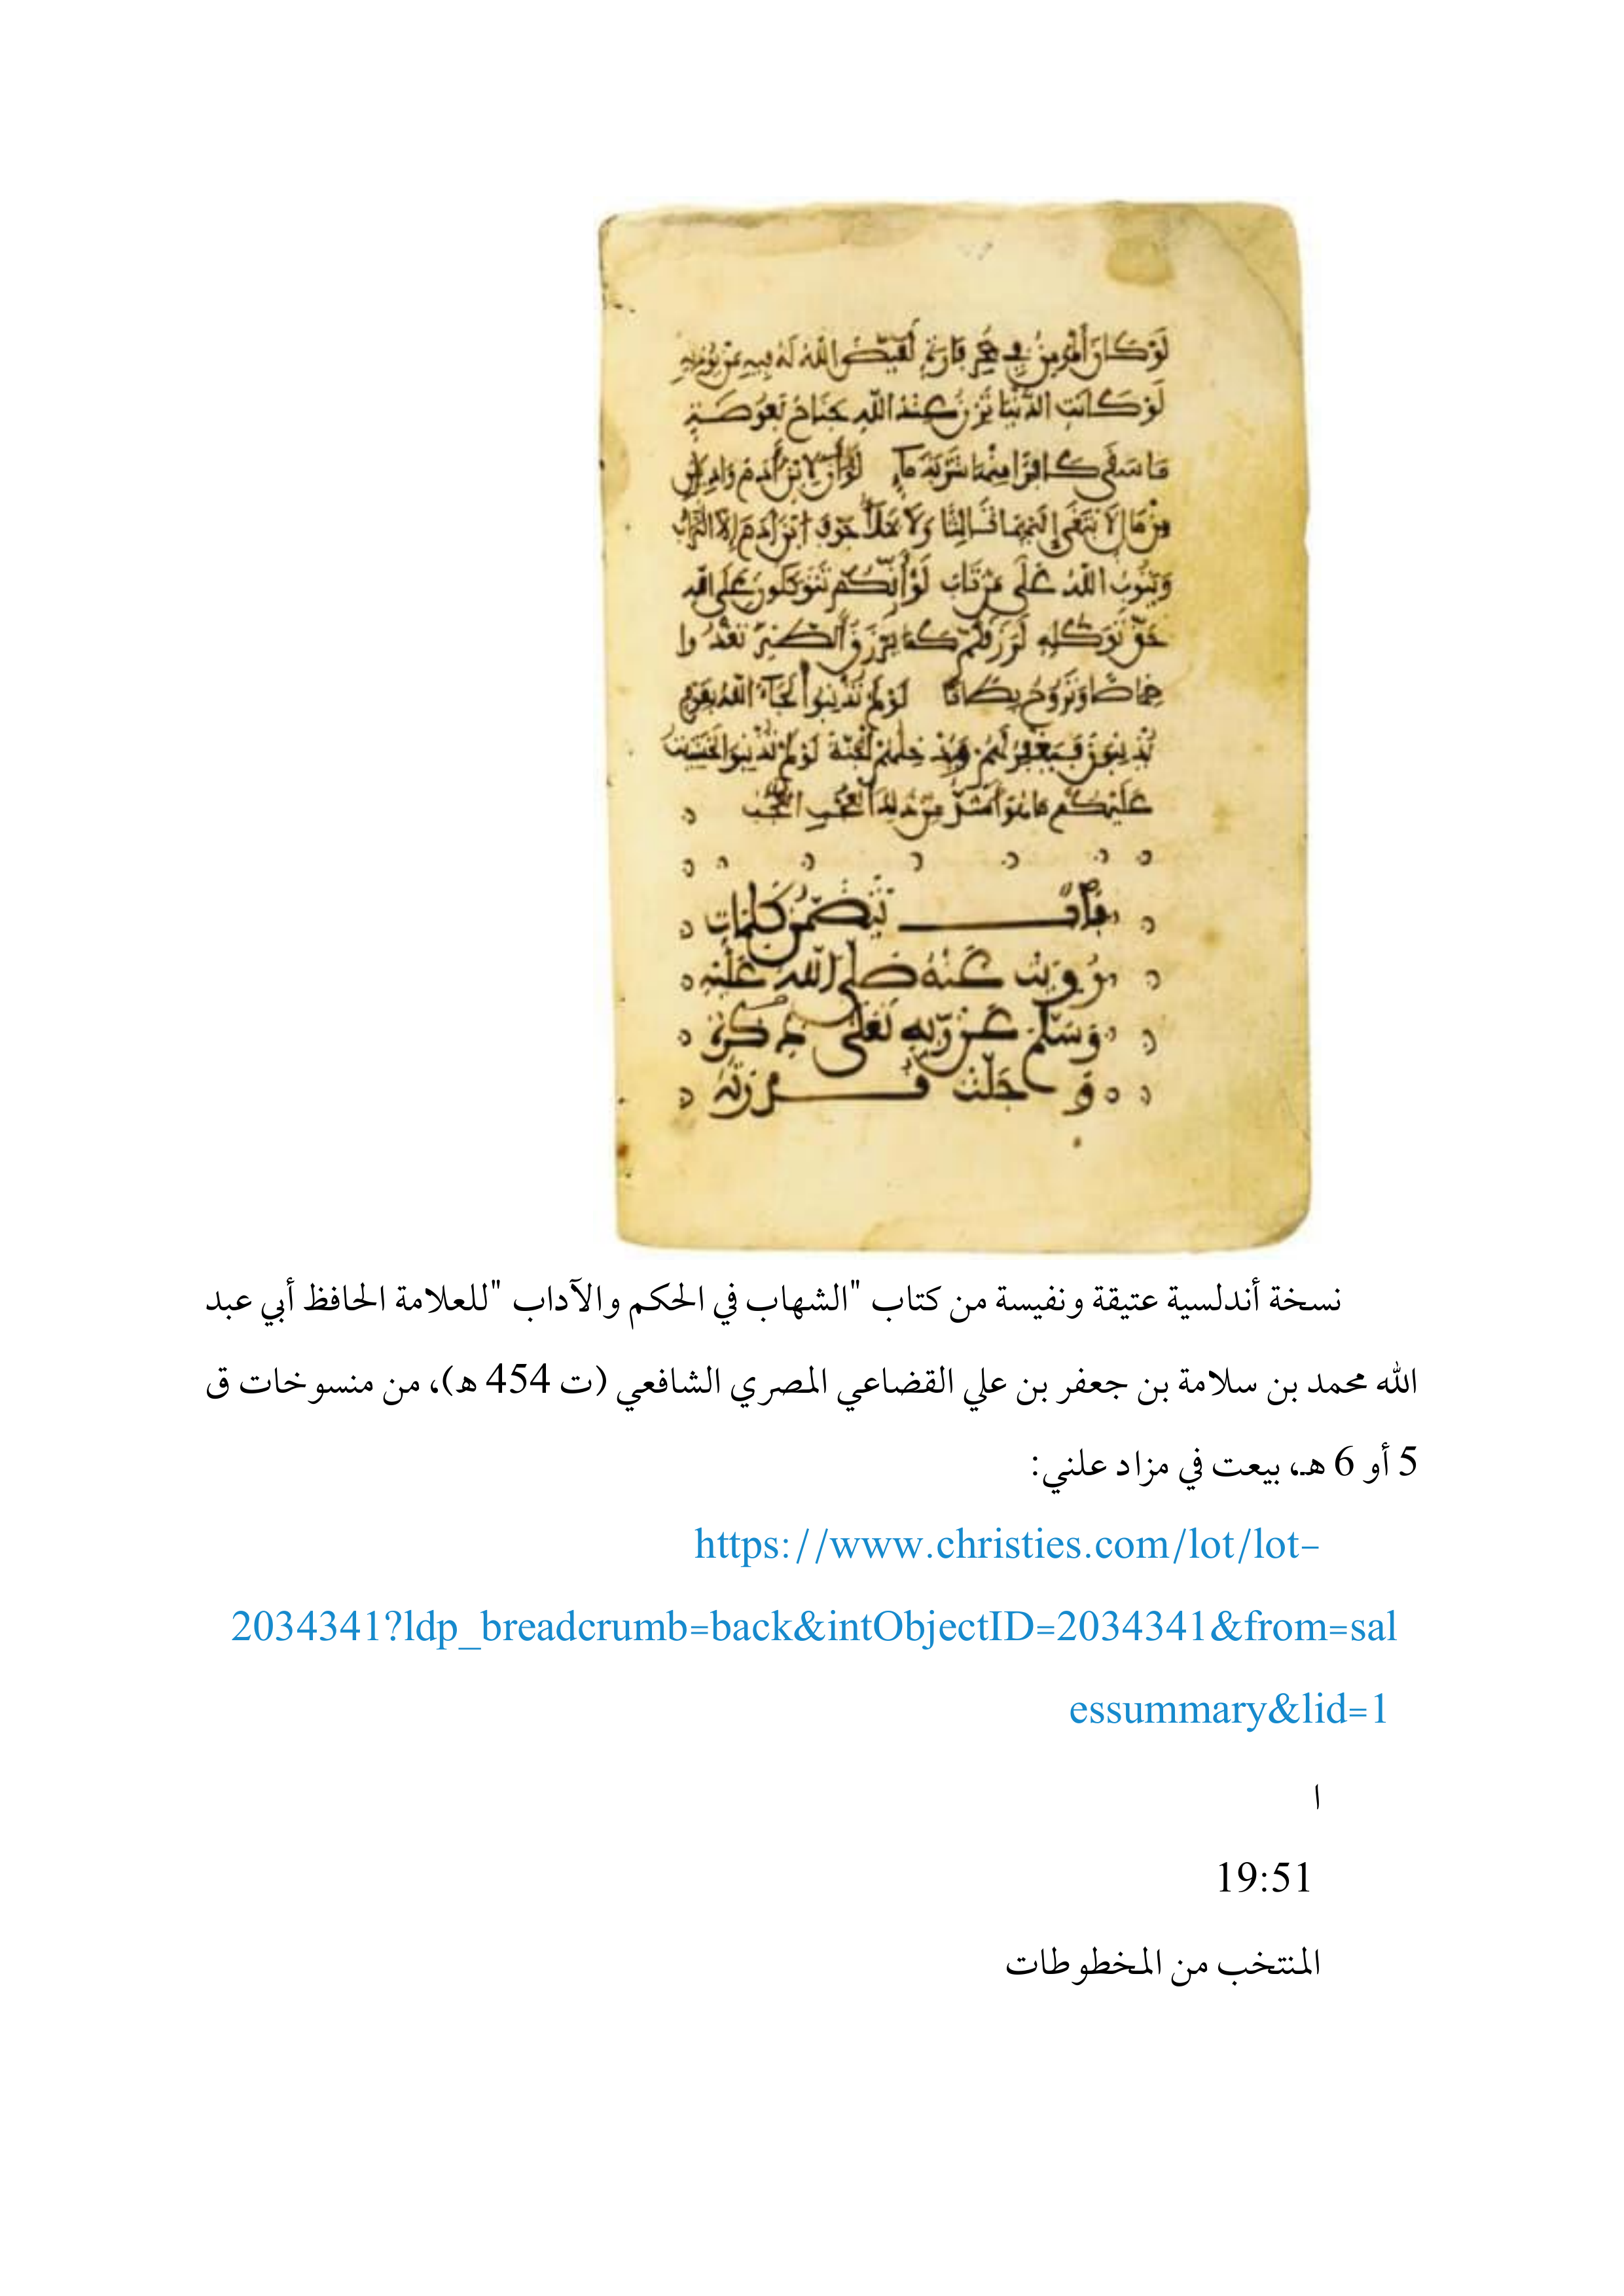 لَوْ كَانَ الْمُؤْمِنُ فِي جُحْرِ فَارَةٍ لَقَيَّضَ اللَّهُ لَهُ فِيهِ مَنْ يُوذِيهِ
لَوْ كَانَتِ الدُّنْيَا تَزِنُ عِنْدَ اللَّهِ جَنَاحَ بَعُوضَةٍ
مَا سَقَى كَافِرًا مِنْهَا شَرْبَةَ مَاءٍ لَوْ أَنَّ لِابْنِ آدَمَ وَادِيَيْنِ
مِنْ مَالٍ لَابْتَغَى إِلَيْهِمَا ثَالِثًا وَلَا يَمْلَأُ جَوْفَ ابْنِ آدَمَ إِلَّا التُّرَابُ
وَيَتُوبُ اللَّهُ عَلَى مَنْ تَابَ لَوْ أَنَّكُمْ تَتَوَكَّلُونَ عَلَى اللَّهِ
حَقَّ تَوَكُّلِهِ لَرَزَقَكُمْ كَمَا يَرْزُقُ الطَّيْرَ تَغْدُوا
خِمَاصًا وَتَرُوحُ بِطَانًا لَوْ لَمْ تُذْنِبُوا لَجَاءَ اللَّهُ بِقَوْمٍ
يُذْنِبُونَ فَيَغْفِرُ لَهُمْ وَيُدْخِلُهُمُ الْجَنَّةَ لَوْ لَمْ تُذْنِبُوا لَخَشِيتُ
عَلَيْكُمْ مَا هُوَ أَشَدُّ مِنْ ذَلِكَ الْعُجْبَ الْعُجْبَ
بَابٌ تَتَضَمَّنُ كَلِمَاتٍ
رُوِيَتْ عَنْهُ صَلَّى اللَّهُ عَلَيْهِ
وَسَلَّمَ عَنْ رَبِّهِ تَعَلَى
وَجَلَّتْ قُدْرَتُهُ
نسخة أندلسية عتيقة ونفيسة من كتاب "الشهاب في الحكم والآداب "للعلامة الحافظ أبي عبد
الله محمد بن سلامة بن جعفر بن علي القضاعي المصري الشافعي (ت 454 ه)، من منسوخات ق
5 أو 6 هـ، بيعت في مزاد علني:
https://www.christies.com/lot/lot-
2034341?ldp_breadcrumb=back&intObjectID=2034341&from=sal
essummary&lid=1
ا
19:51
المنتخب من المخطوطات